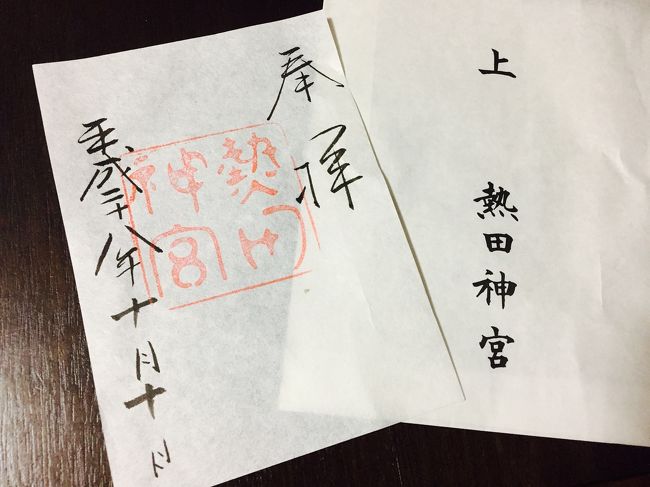 上
熱田神宮
奉拝
熱田神宮
平成二十八年十月十日